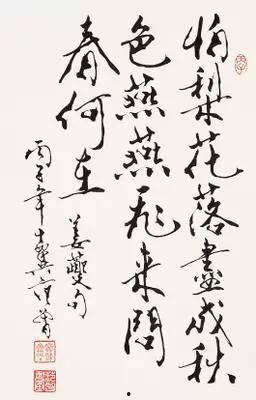 怕梨花落盡成秋
色燕燕飛來問
春何在 姜夔句
丙子年十翼范曾